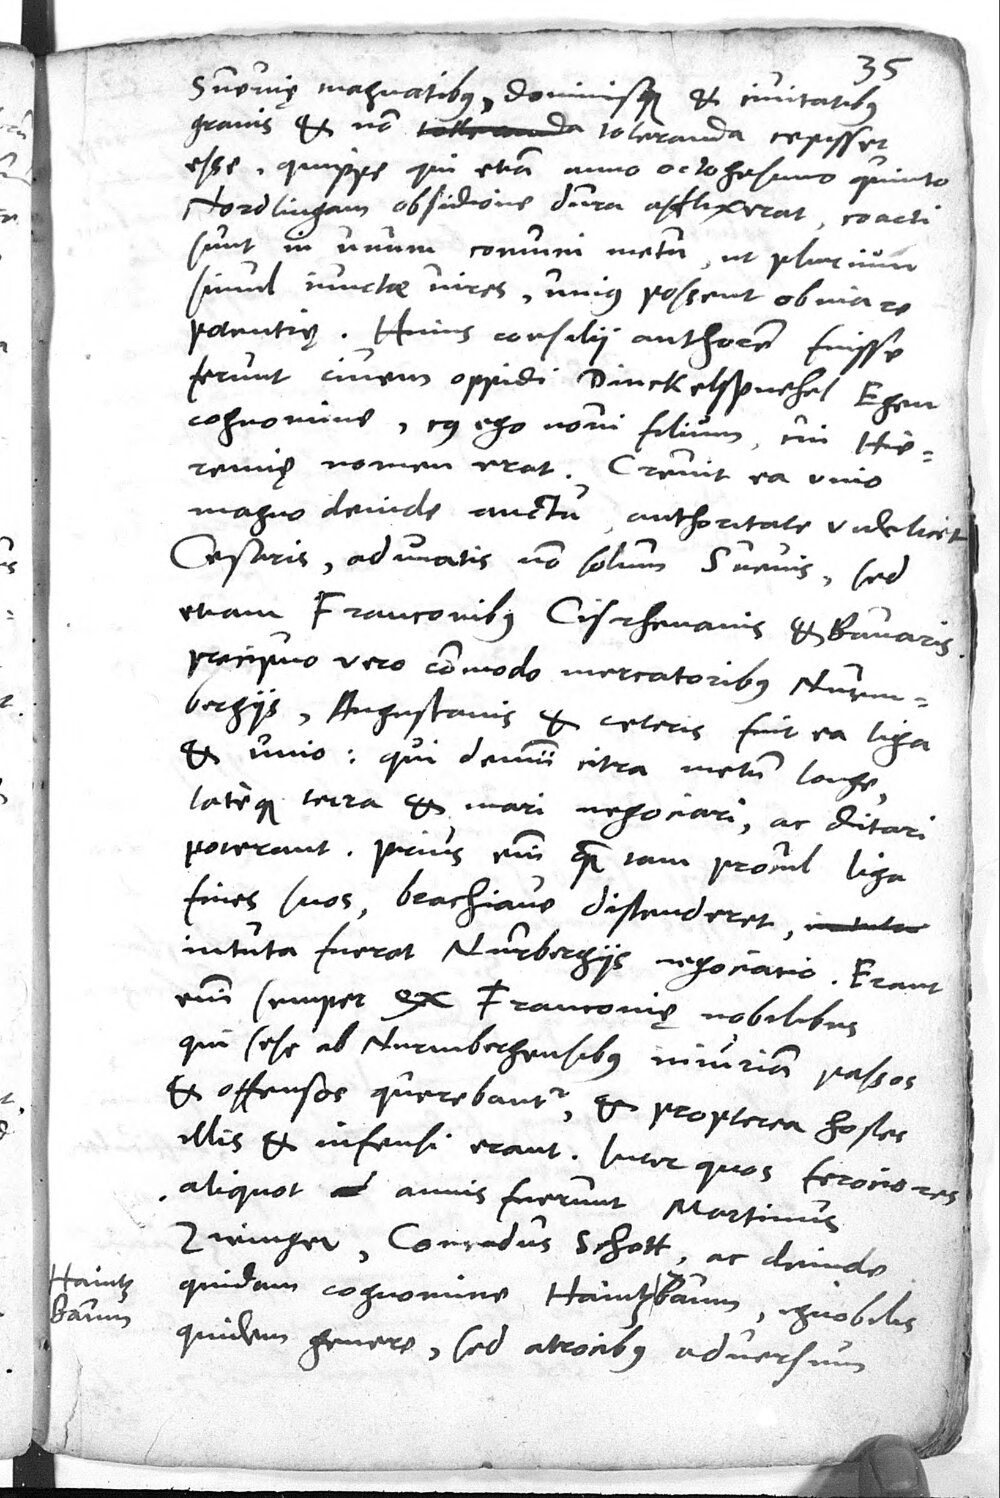 35
Sueuię magnatibꝰ, dominisqꝫ & ciuitatibꝰ
grauis & nō tolleranda toleranda cepisset
esse, quippe qui etiā anno octogesimo quinto
Nordlingam obsidione dura afflixerat, coacti
sunt in vnum comuni metu, ut plurium
simul iunctae uires, vniꝰ possent obuiare
potentię. Huius consilij authorē fuisse
ferunt ciuem oppidi Dinckelspuehel Egen
cognomine, cꝰ ego noui filium, cui Hie=
remię nomen erat. Creuit ea vnio
magno deinde auctu, authoritate videlicet
Cesaris, adunatis nō solum Sueuis, sed
etiam Franconibꝰ Cisrhenanis & Bauaris.
precipuo vero cōmodo mercatoribꝰ Nurem=
bergijs, Augustanis & ceteris fuit ea liga
& vnio: qui demū citra metū longe,
latèqꝫ terra & mari negociari, ac ditari
poterant. Prius enī qꝫ tam procul liga
fines suos, brachiaue distenderet, intuta
intuta fuerat Nurbergijs negociatio. Erant
enī semper ex Franconię nobilibus
qui sese ab Nurmbergensibꝰ iniuriā passos
& offensos querebantʳ, & propterea hostes
illis & infensi erant. Inter quos ferociores
aliquot annis fuerunt Martinus
Zwinger, Conradus Schott, ac deinde
quidam cognomine Haintz Baum, ignobilis
quidem genere, sed atrocibꝰ aduersum
Haintz
Baum